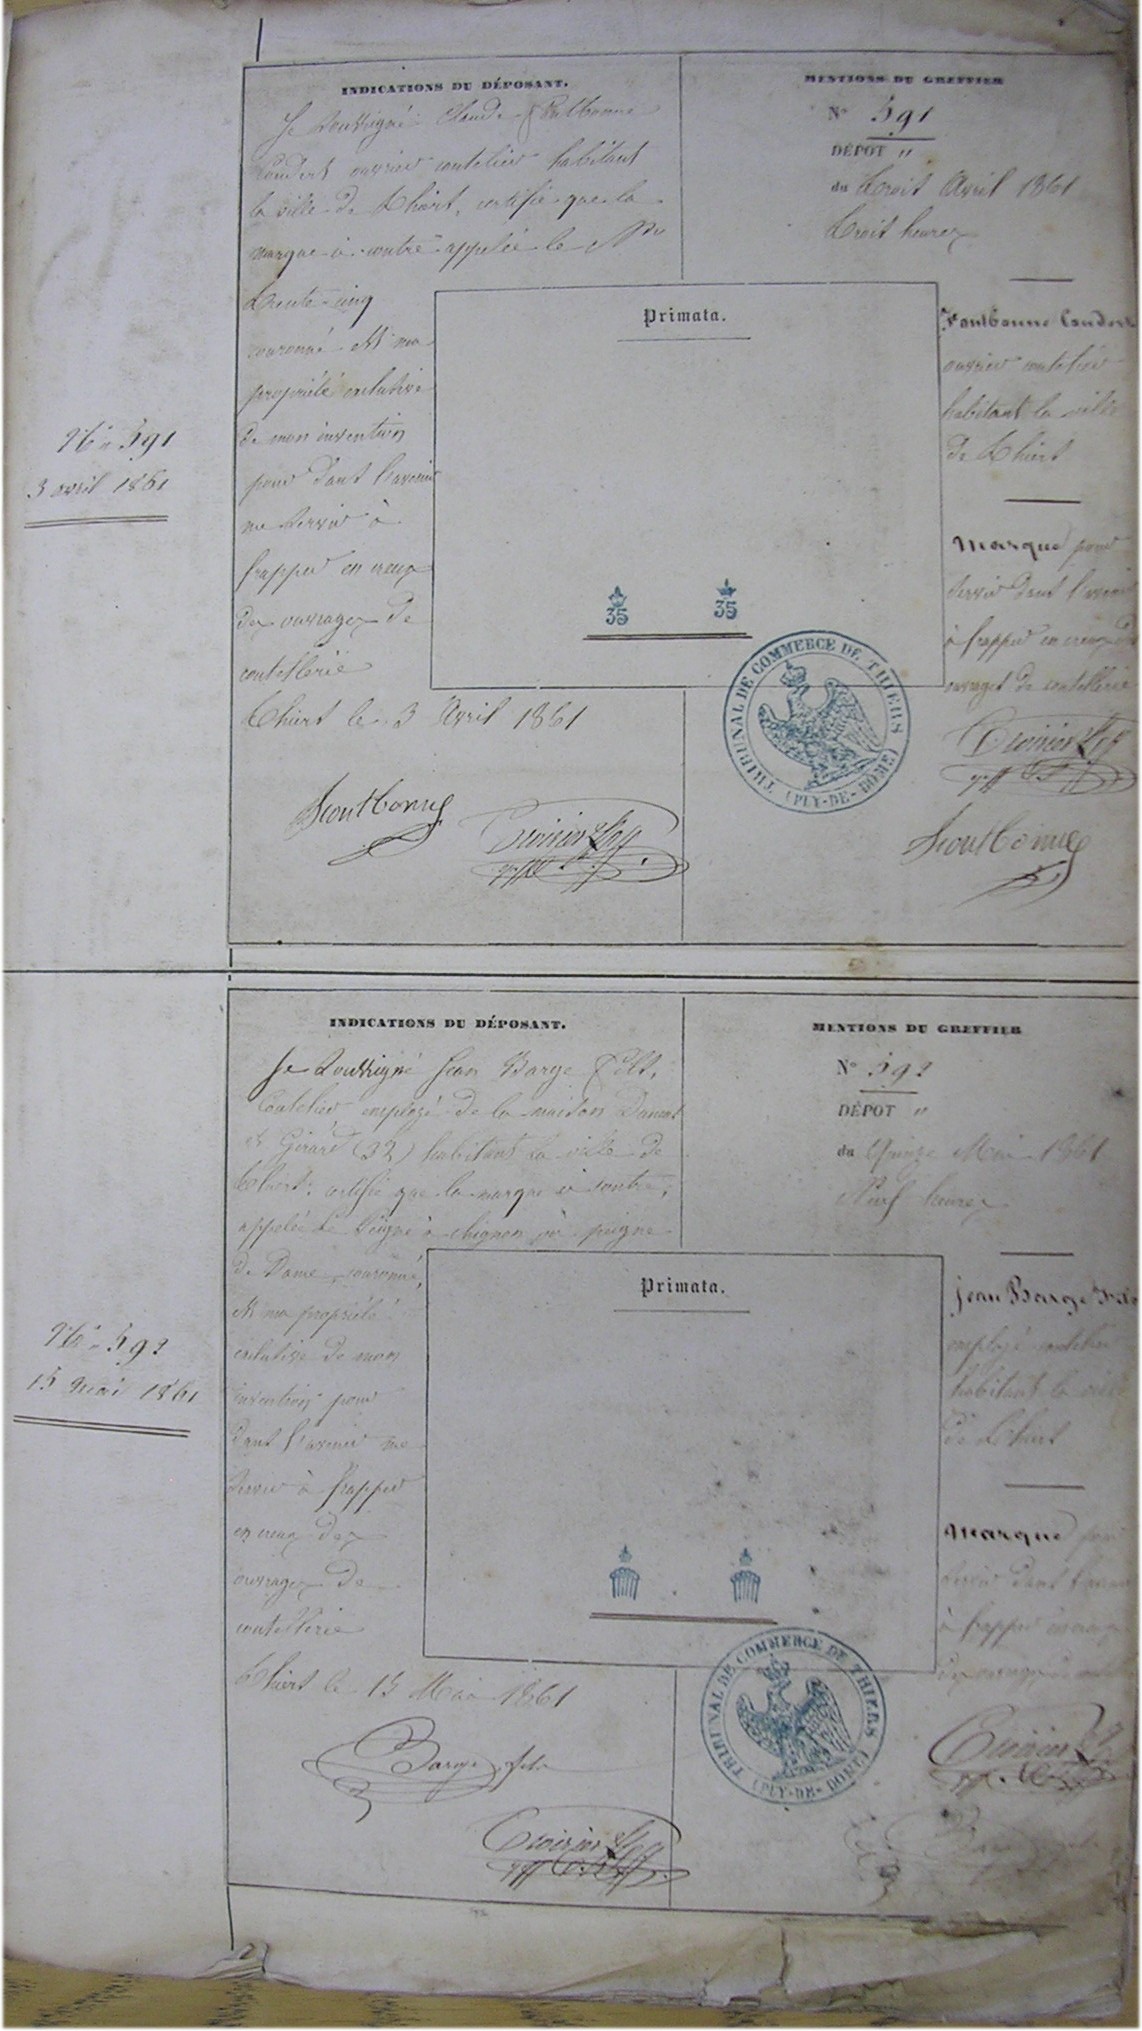 INDICATIONS DU DÉPOSANT.
Je soussigné Claude Fontbonne
Coudert ouvrier coutelier habitant
la ville de Thiers, certifie que la
marque ci-contre appelée le No
Trente-cinq
couronné est ma
propriété exclusive
de mon invention
pour dans l'avenir
me servir à
frapper en creux
des ouvrages de
coutellerie
Thiers le 3 Avril 1861
Fontbonne
No 591
3 avril 1861
Primata.
35 35
TRIBUNAL DE COMMERCE DE THIERS (PUY-DE-DOME)
MENTIONS DU GREFFIER
No 591
DÉPOT "
du Trois Avril 1861
Trois heures
Fontbonne Coudert
ouvrier coutelier
habitant la ville
de Thiers
Marque pour
servir dans l'avenir
à frapper en creux des
ouvrages de coutellerie
Fontbonne
INDICATIONS DU DÉPOSANT.
Je soussigné Jean Barge fils,
Coutelier employé de la maison
et Girard (32) habitant la ville de
Thiers, certifie que la marque ci contre,
appelée le Peigne à chignon ou peigne
de Dame, couronné,
est ma propriété
exclusive de mon
invention pour
dans l'avenir me
servir à frapper
en creux des
ouvrages de
coutellerie
Thiers le 15 Mai 1861
Barge fils
No 592
15 mai 1861
Primata.
TRIBUNAL DE COMMERCE DE THIERS (PUY-DE-DOME)
MENTIONS DU GREFFIER
No 592
DÉPOT "
du Quinze Mai 1861
Neuf heures
Jean Barge Fils
employé coutelier
habitant la ville
de Thiers
Marque pour
servir dans l'avenir
à frapper en creux
des ouvrages de
Barge